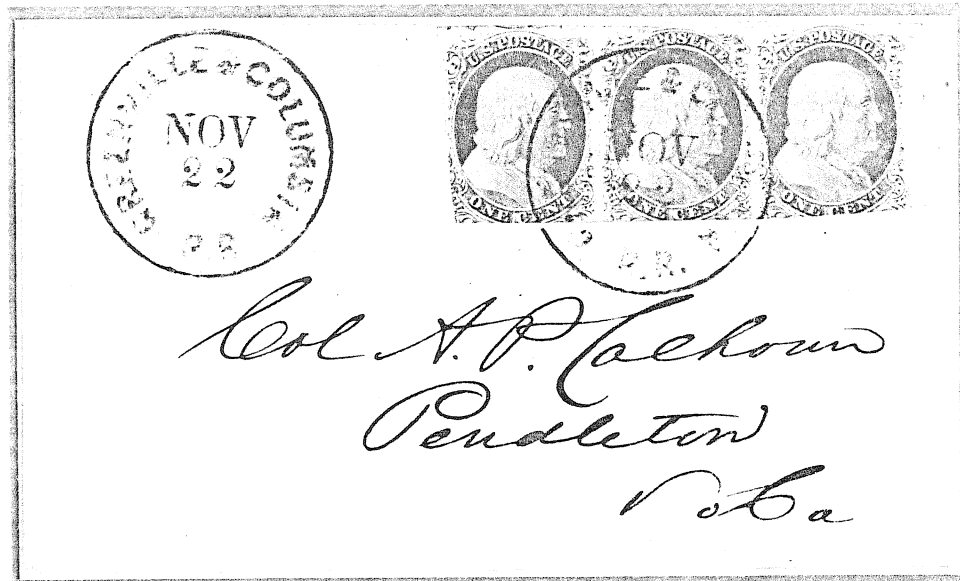 GREENVILLE & COLUMBIA
NOV
22
R R
U.S. POSTAGE
ONE CENT
U.S. POSTAGE
ONE CENT
U.S. POSTAGE
ONE CENT
OV
R.R.
Col A. P. Calhoun
Pendleton
So Ca